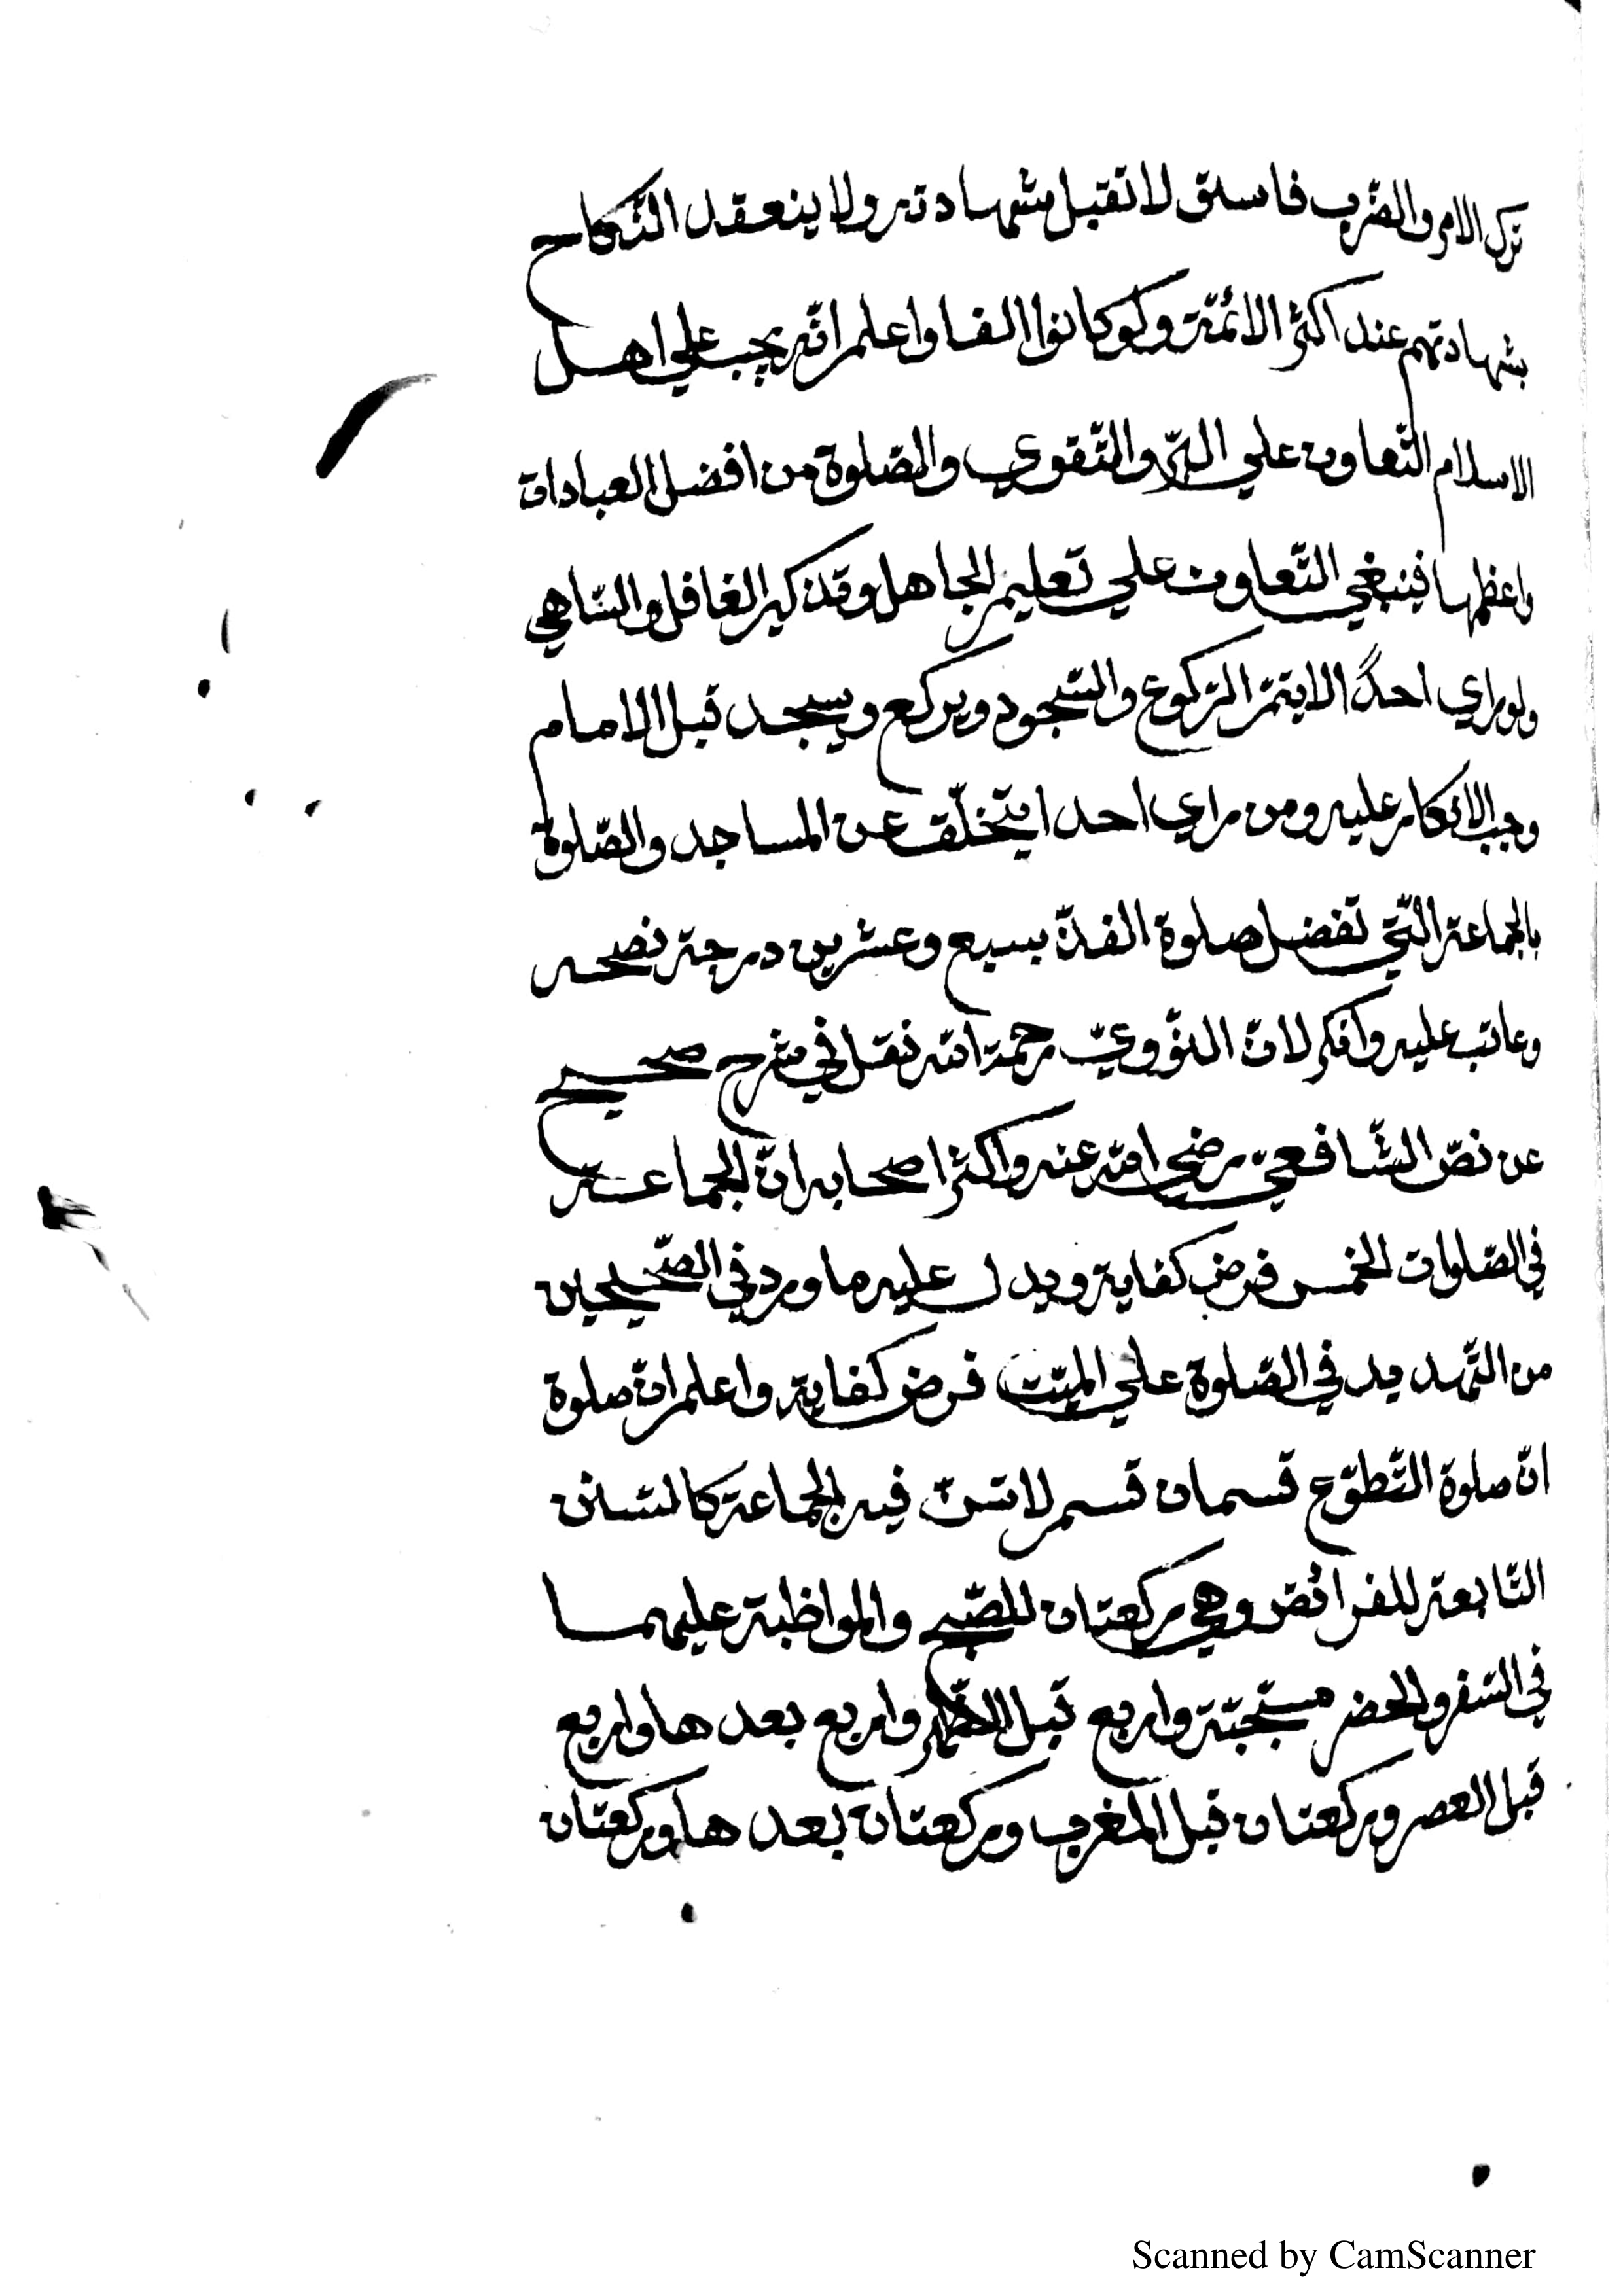 ترك الامر والضرب فاسق لا تقبل شهادته ولا ينعقد النكاح
بشهادتهم عند اكثر الائمّة ولو كانوا الفا واعلم انّه يجب علي اهل
الاسلام التّعاون علي البرّ والتّقوي والصّلوة من افضل العبادات
واعظمها فينبغي التّعاون علي تعليم الجاهل وتذكير الغافل والسّاهي
ولو راي احدًا لا يتمّ الرّكوع والسّجود ويركع ويسجد قبل الامام
وجب الانكار عليه ومن راي احدا يتخلّف عن المساجد والصّلوة
بالجماعة الّتي تفضل صلوة الفذّ بسبع وعشرين درجة نصحه
وعاتب عليه وانكر لانّ النّوويّ رحمة الله نقل في شرح صحيح
عن نصّ الشّافعيّ رضي الله عنه واكثر اصحابه انّ الجماعة
في الصّلوات الخمس فرض كفاية ويدل عليه ما ورد في الصّحيحين
من التّهديد في الصّلوة علي الميّت فرض كفاية واعلم انّ صلوة
انّ صلوة التّطوّع قسمان قسم لا تسنّ فيه الجماعة كالسّنن
التّابعة للفرائض وهي ركعتان للصّبح والمواظبة عليهما
في السّفر والحضر مستحبّة واربع قبل الظّهر واربع بعدها واربع
قبل العصر وركعتان قبل المغرب وركعتان بعدها وركعتان
Scanned by CamScanner